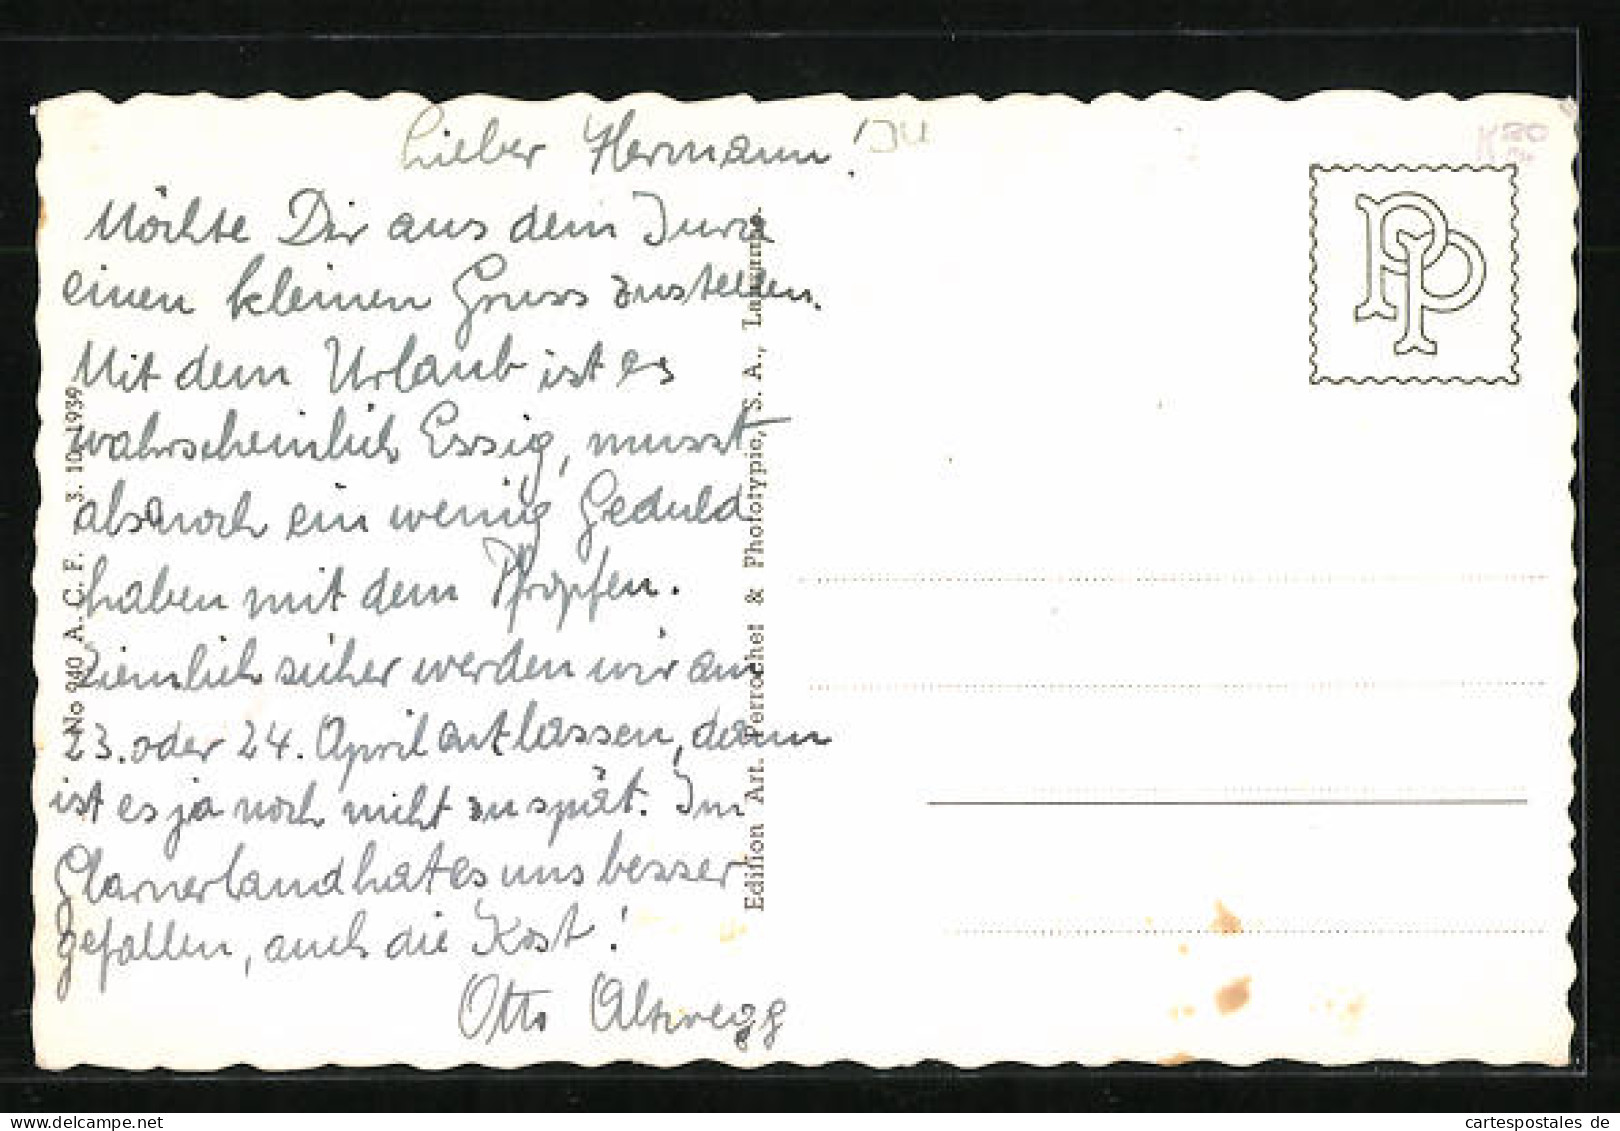 Lieber Hermann!
JU
Möchte Dir aus dem Jura
einen kleinen Gruss zustellen.
Mit dem Urlaub ist es
wahrscheinlich Essig, musst
also noch ein wenig Geduld
haben mit dem Pfropfen.
Ziemlich sicher werden wir am
23. oder 24. April entlassen, dann
ist es ja noch nicht zu spät. Im
Glarnerland hat es uns besser
gefallen, auch die Kost!
Otto Altwegg
No 940 A. C. F. 3. 10. 1939
Edition Art. Perrochet & Phototypie, S. A., Lausanne.
PP
cartespostales de